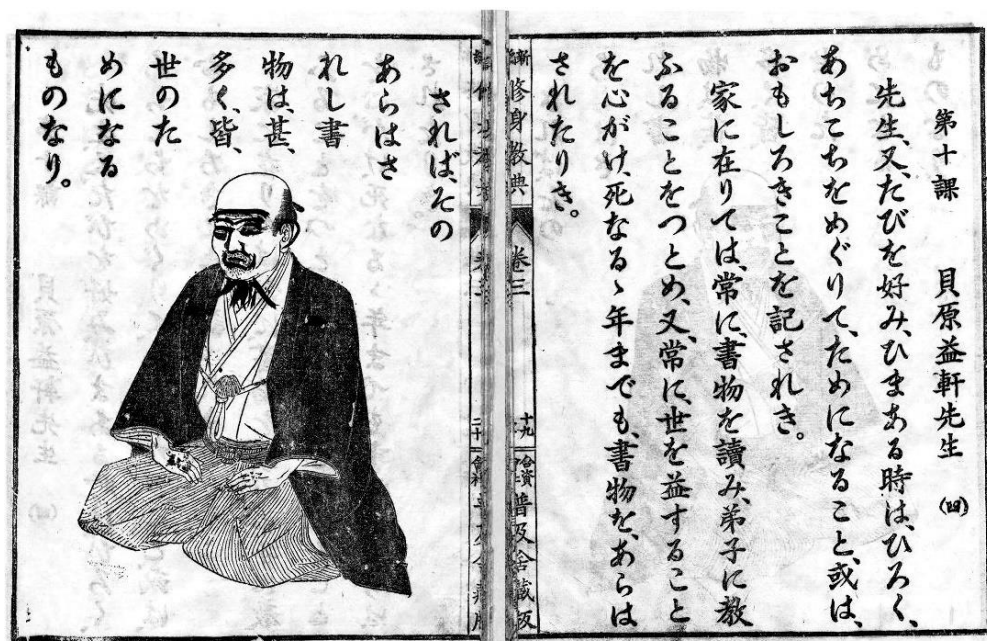 第十課　貝原益軒先生　(四)
先生、又、たびを好み、ひまある時は、ひろく、
あちこちをめぐりて、ためになること、或は、
おもしろきことを記されき。
家に在りては、常に、書物を讀み、弟子に教
ふることをつとめ、又、常に、世を益すること
を心がけ、死なるゝ年までも、書物を、あらは
されたりき。
新編修身教典　卷三　十九　合資會社普及舍藏版
されば、その
あらはさ
れし書
物は、甚、
多く、皆、
世のた
めになる
ものなり。